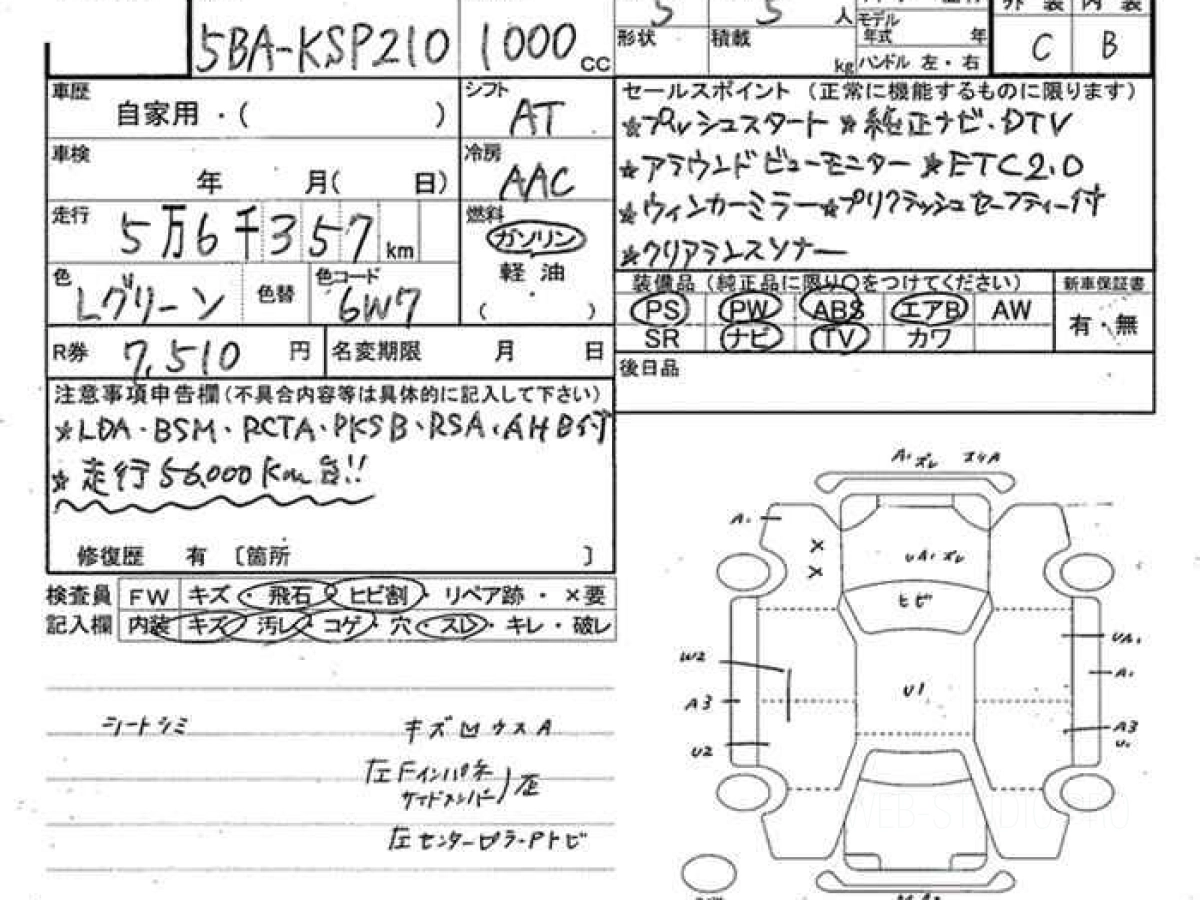 5BA-KSP210 1000 cc
5 5 人
モデル年式 年
形状 積載 kg
ハンドル 左・右
外装 内装
C B
車歴 自家用・( )
シフト AT
車検 年 月( 日)
冷房 AAC
走行 5万6千357 km
燃料 ガソリン
軽油
( ・ )
色 Lグリーン 色替 色コード 6W7
R券 7,510 円 名変期限 月 日
セールスポイント (正常に機能するものに限ります)
☆プッシュスタート ☆純正ナビ・DTV
☆アラウンドビューモニター ☆ETC2.0
☆ウィンカーミラー☆プリクラッシュセーフティー付
☆クリアランスソナー
装備品 (純正品に限り○をつけてください) 新車保証書
PS PW ABS エアB AW 有・無
SR ナビ TV カワ
後日品
注意事項申告欄(不具合内容等は具体的に記入して下さい)
☆LDA・BSM・RCTA・PKSB・RSA・AHB付
☆走行56,000Km台!!
修復歴 有 〔箇所 〕
検査員 FW キズ・飛石・ヒビ割・リペア跡・×要
記入欄 内装 キズ・汚レ・コゲ・穴・スレ・キレ・破レ
シートシミ キズ凹ウスA
左Fインパネ
サイドメンバー)歪
左センターピラーPトビ
A1 ズレ スリA
A1
X
X
UA1 ズレ
ヒビ
W2
UA1
A1
U1
A3
A3
U1
U2
WEB-STUDIO PRO